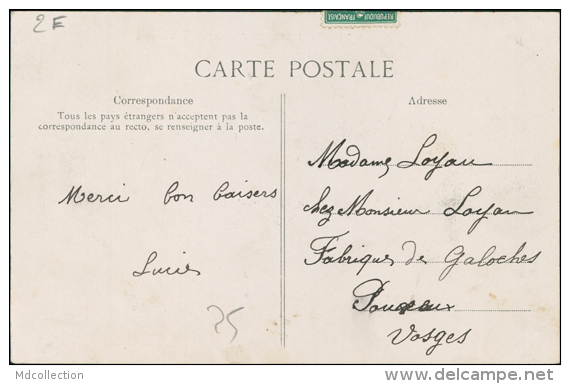 2 E
REPUBLIQUE FRANÇAISE
CARTE POSTALE
Correspondance
Tous les pays étrangers n'acceptent pas la
correspondance au recto, se renseigner à la poste.
Merci bon baisers
Lucie
25
Adresse
Madame Loyau
chez Monsieur Loyau
Fabriques de Galoches
Pouxeux
Vosges
Mdcollection
http://www.delcampe.net